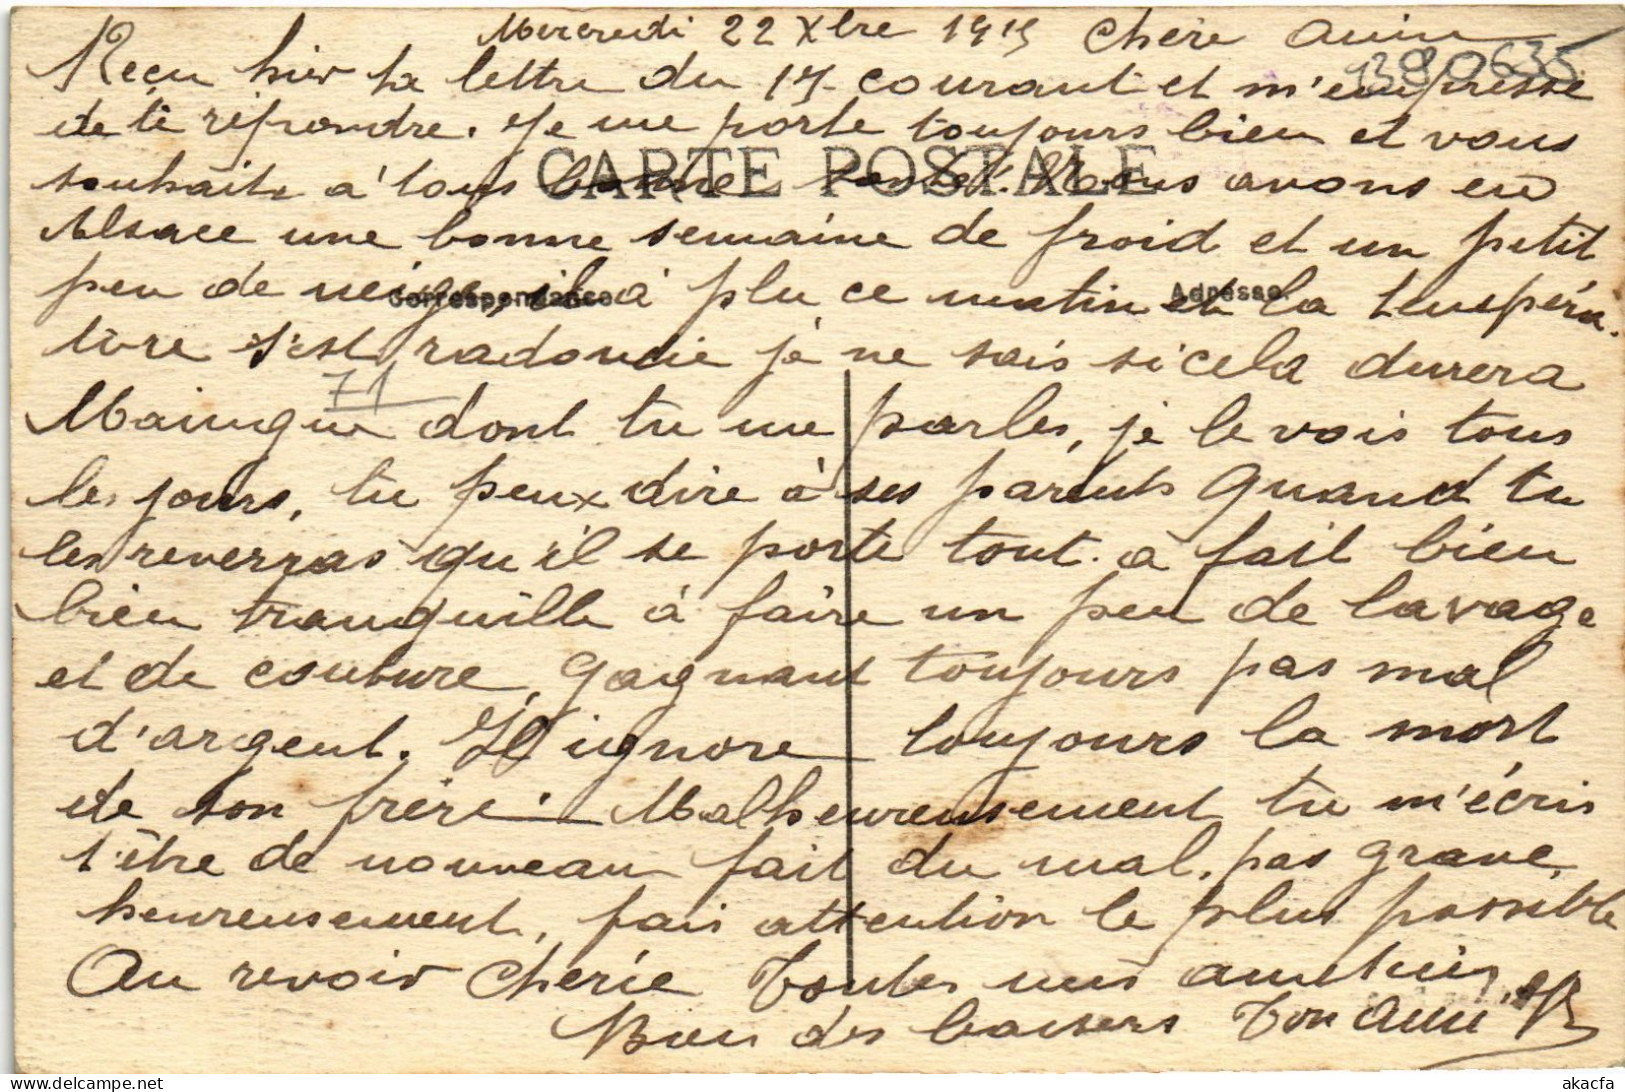 Mercredi 22 Xbre 1915 Chère Amie
1380635
Reçu hier ta lettre du 17 courant et m'empresse
de te répondre. Je me porte toujours bien et vous
souhaite à tous bonne santé. Nous avons en
CARTE POSTALE
Alsace une bonne semaine de froid et un petit
peu de neige, il à plu ce matin et la tempéra-
Correspondance Adresse
ture s'est radoucie je ne sais si cela durera
71
Maingui dont tu me parles, je le vois tous
les jours, tu peux dire à ses parents quand tu
les reverras qu'il se porte tout à fait bien
bien tranquille à faire un peu de lavage
et de couture, gagnant toujours pas mal
d'argent. Il ignore toujours la mort
de son frère. Malheureusement tu m'écris
t'être de nouveau fait du mal, pas grave,
heureusement, fais attention le plus possible
Au revoir Chérie Toutes mes amitiés,
Bon des baisers Ton Ami
akacfa